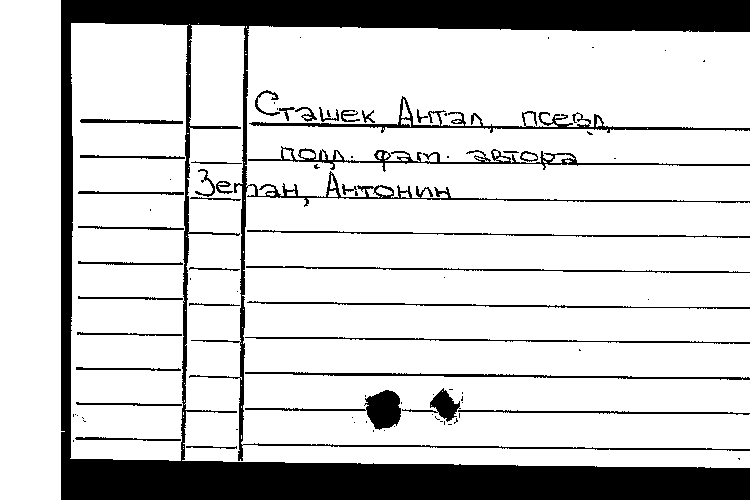 Сташек, Антал, псевд.
подл. фам. автора
Земан, Антонин